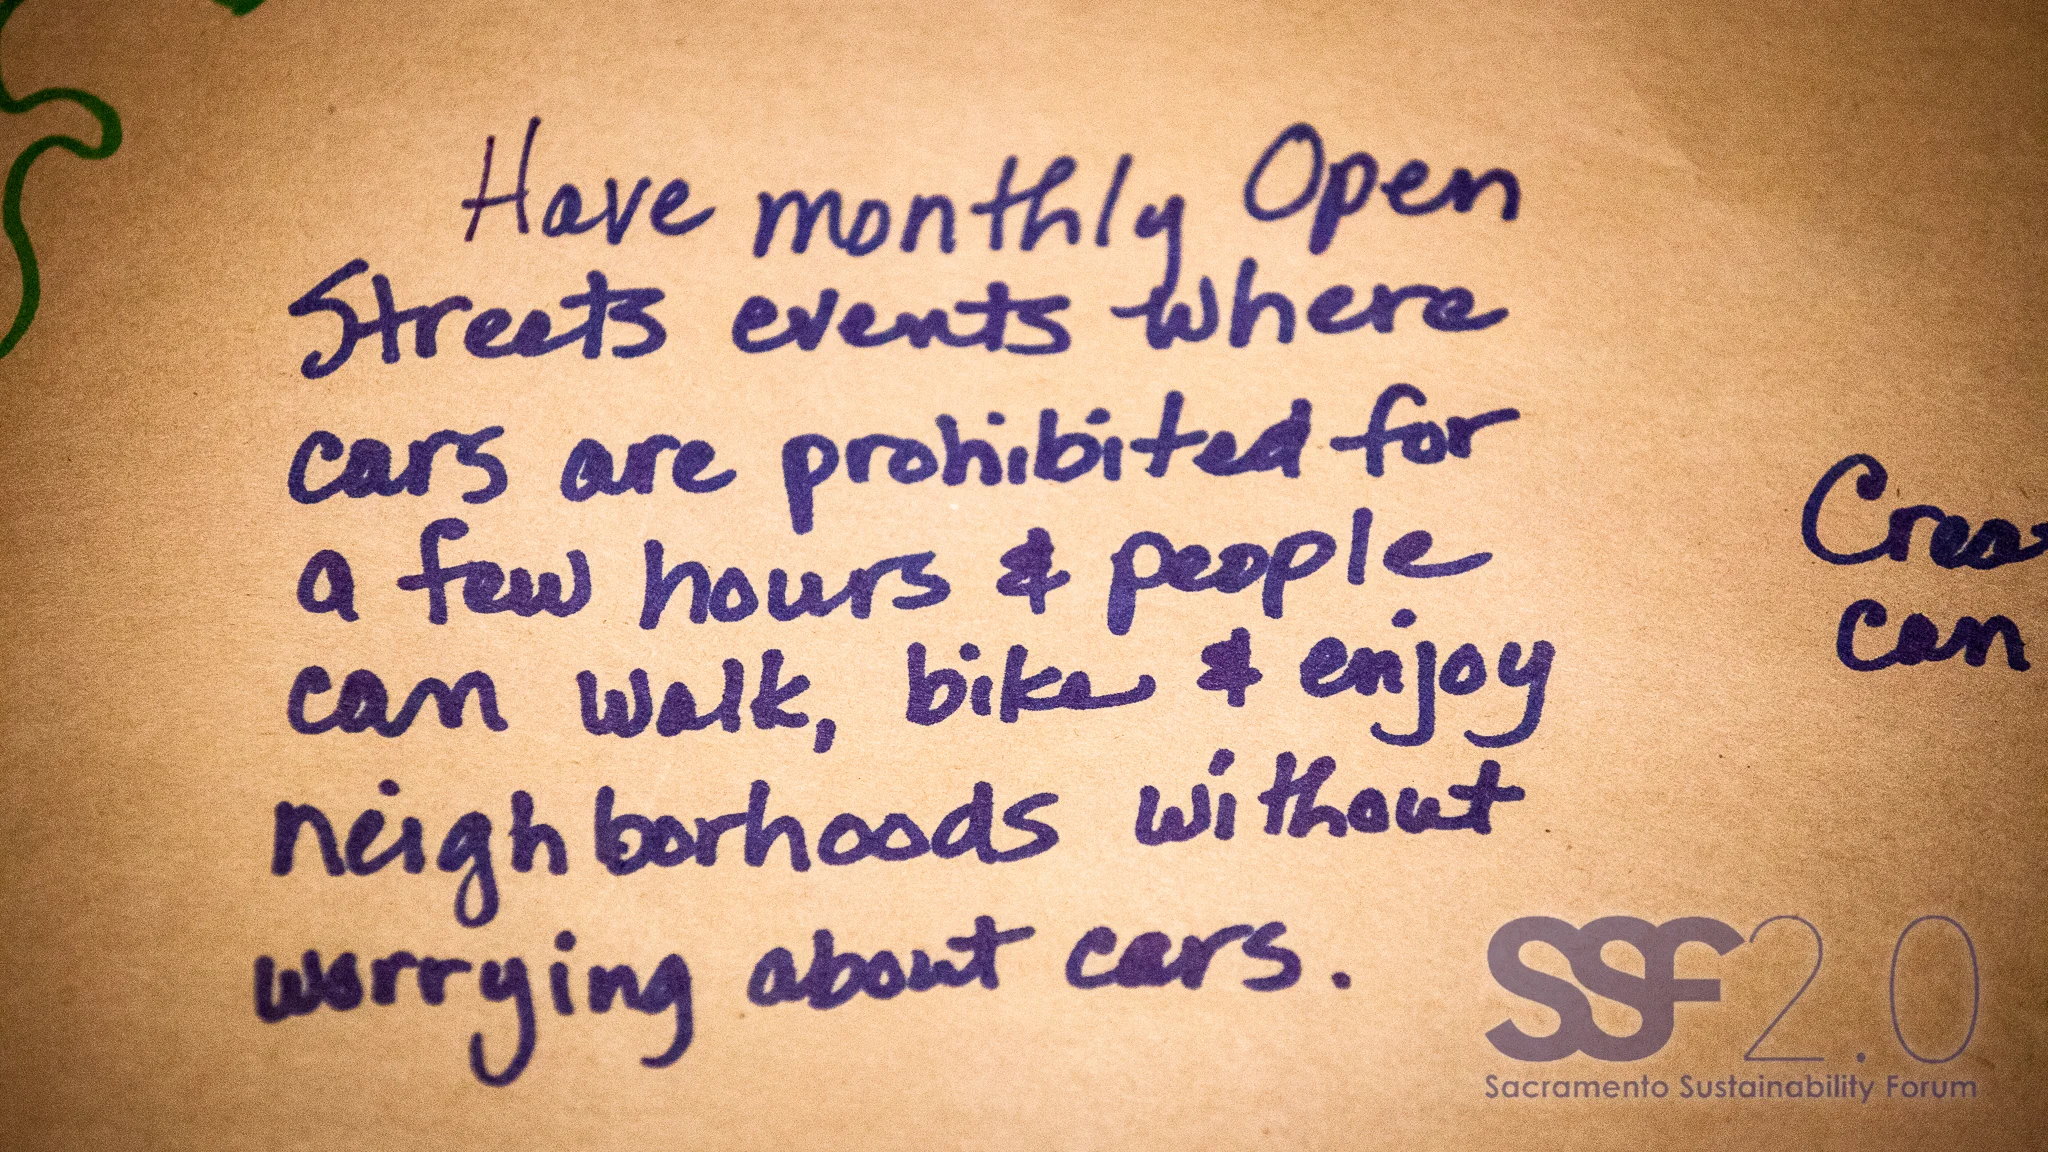 Have monthly Open
Streets events where
cars are prohibited for
a few hours & people
can walk, bike & enjoy
neighborhoods without
worrying about cars.
can
SSF2.0
Sacramento Sustainability Forum